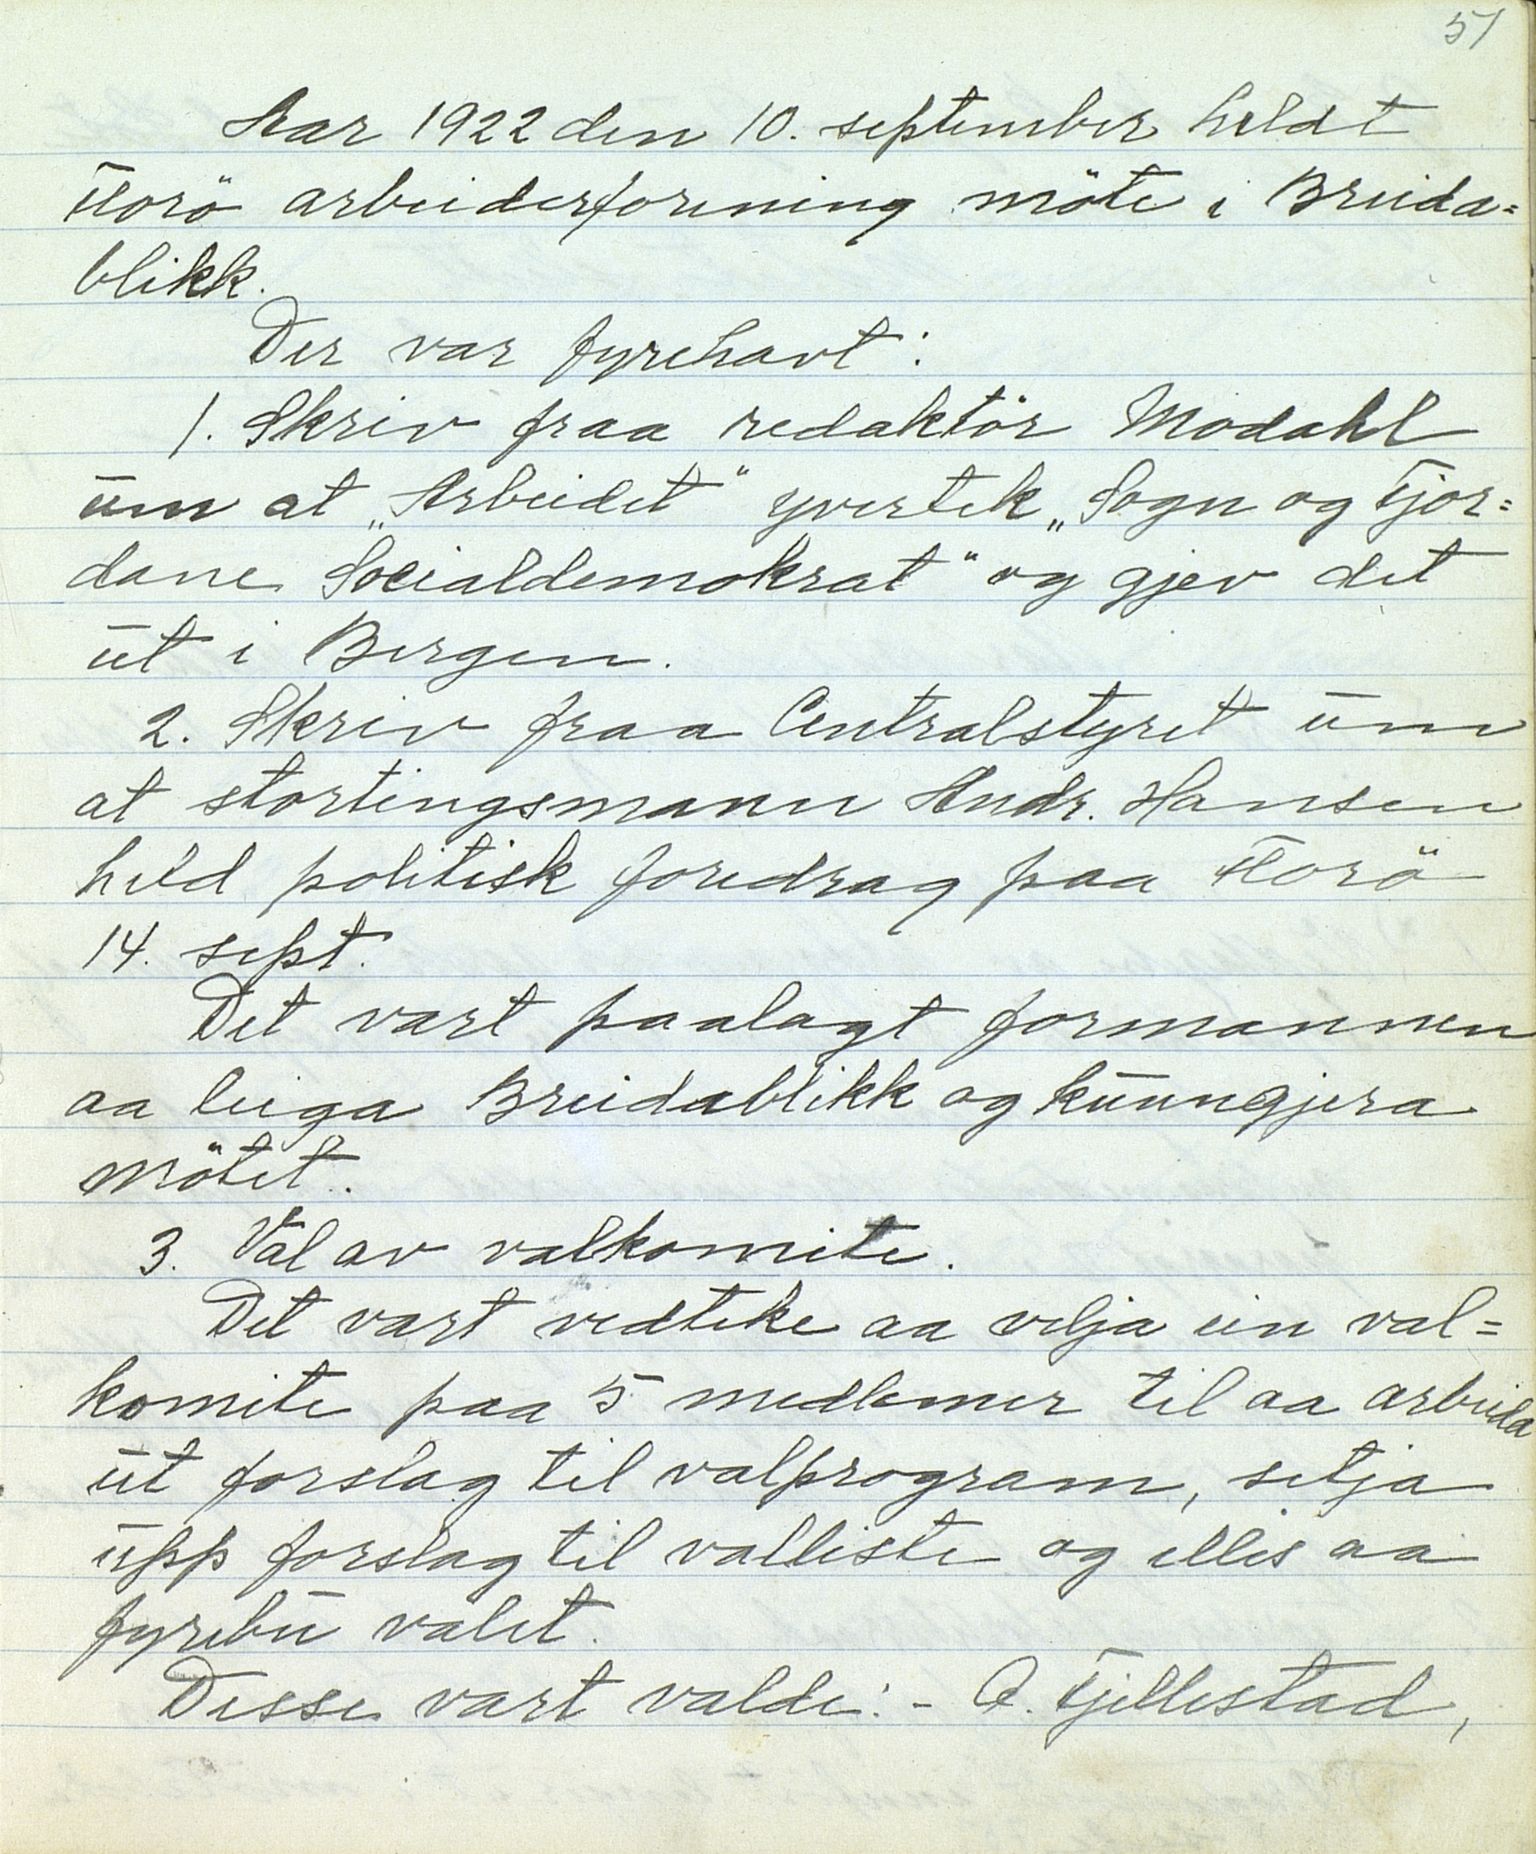 51
Aar 1922 den 10. september heldt
Florö arbeiderforening möte i Breida=
blikk.
Der var fyrehavt:
1. Skriv fraa redaktör Modahl
um at „Arbeidet" yvertek „Sogn og Fjor=
dane Socialdemokrat" og gjev det
ut i Bergen.
2. Skriv fraa Centralstyret um
at stortingsmann Andr. Hansen
held politisk foredrag paa Florö
14. sept.
Det vart paalagt formannen
aa leiga Breidablikk og kunngjera
mötet.
3. Val av valkomite.
Det vart vedteke aa velja ein val=
komite paa 5 medlemer til aa arbeida
ut forslag til valprogram, setja
upp forslag til valliste og elles aa
fyrebu valet.
Desse vart valde: - A. Fjellestad,